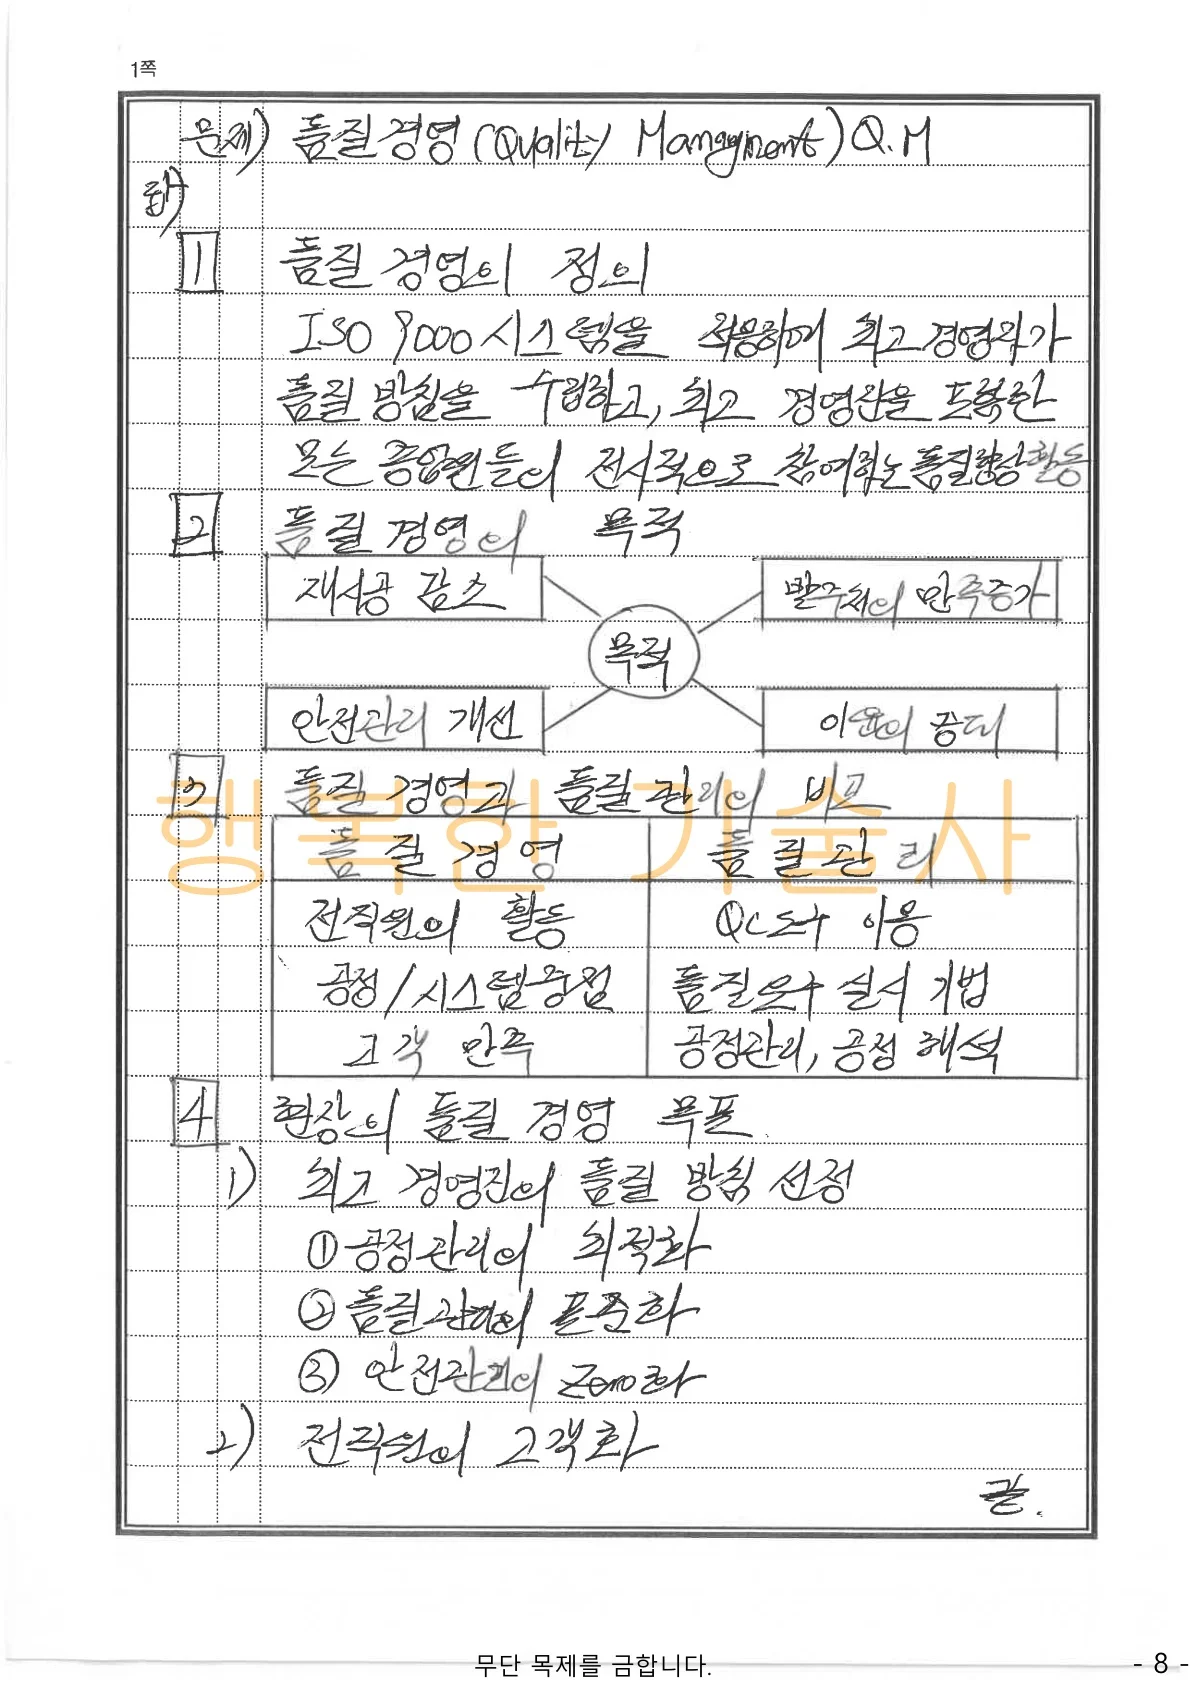 1쪽
문제) 품질경영(Quality Managment) Q.M
답)
1 품질 경영의 정의
ISO 9000 시스템을 적용하여 최고경영자가
품질 방침을 수립하고, 최고 경영자을 포함한
모든 종업원들이 전사적으로 참여하는 품질향상활동
2 품질 경영의 목적
재시공 감소 발주처의 만족증가
목적
안전관리 개선 이윤의 증대
3 품질 경영과 품질 관리의 비교
행복한 기술사
품질경영 품질관리
전직원의 활동 QC도구 이용
공정/시스템중점 품질요구 실시 기법
고객 만족 공정관리, 공정 해석
4 현장의 품질 경영 목표
1) 최고 경영진의 품질 방침 선정
① 공정관리의 최적화
② 품질관리의 표준화
③ 안전관리의 Zero화
2) 전직원의 고객화
끝.
무단 목제를 금합니다.
- 8 -